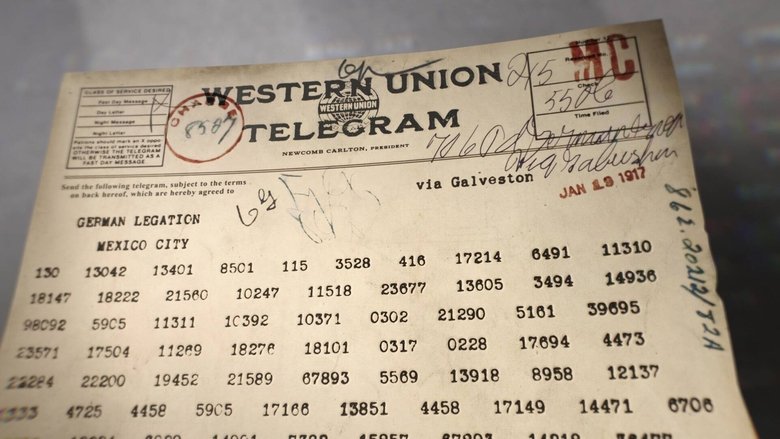 WESTERN UNION
TELEGRAM
WESTERN UNION
NEWCOMB CARLTON, PRESIDENT
CLASS OF SERVICE DESIRED
Fast Day Message
Day Letter
Night Message
Night Letter
Patrons should mark an X oppo-
site the class of service desired;
OTHERWISE THE TELEGRAM
WILL BE TRANSMITTED AS A
FAST DAY MESSAGE.
CHARGE
8587
MC
245
Check
5526
Time Filed
Send the following telegram, subject to the terms
on back hereof, which are hereby agreed to
via Galveston
JAN 19 1917
GERMAN LEGATION
MEXICO CITY
862.20212/82A
130 13042 13401 8501 115 3528 416 17214 6491 11310
18147 18222 21560 10247 11518 23677 13605 3494 14936
98092 5905 11311 10392 10371 0302 21290 5161 39695
23571 17504 11269 18276 18101 0317 0228 17694 4473
22284 22200 19452 21589 67893 5569 13918 8958 12137
1333 4725 4458 5905 17166 13851 4458 17149 14471 6706